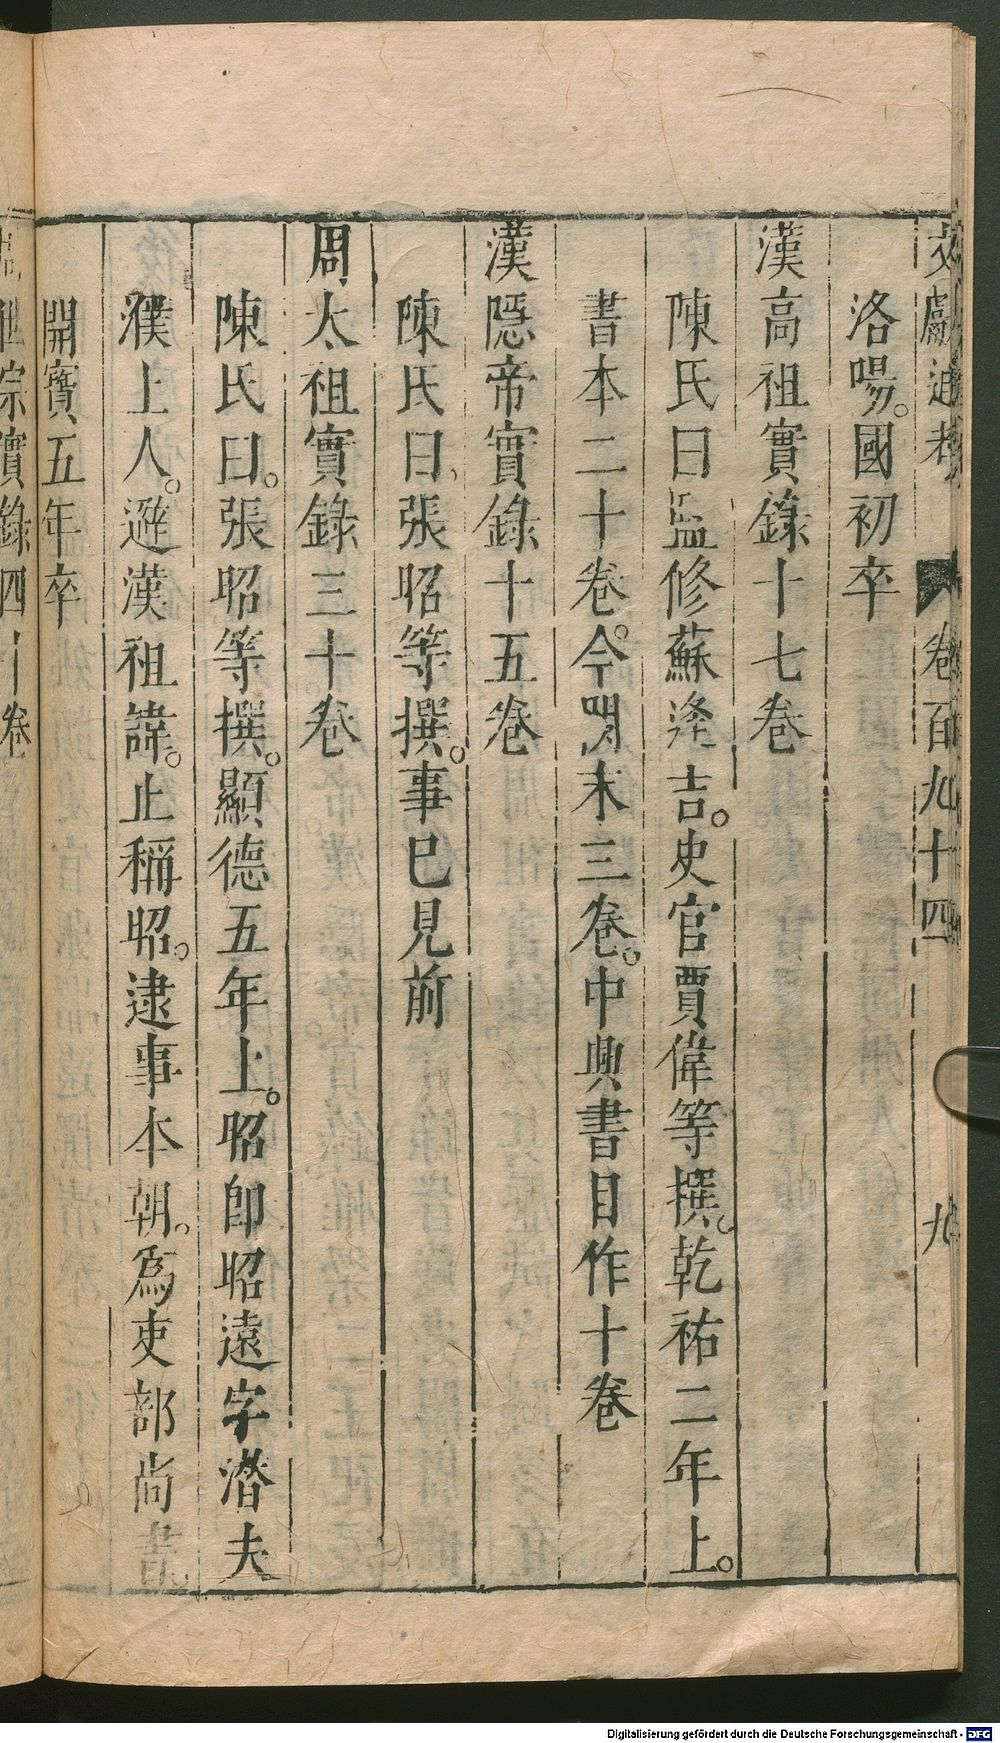 文獻通考 卷百九十四 九
洛陽。國初卒
漢高祖實錄十七卷
陳氏曰監修蘇逢吉。史官賈偉等撰。乾祐二年上。
書本二十卷。今闕末三卷。中興書目作十卷
漢隱帝實錄十五卷
陳氏曰、張昭等撰。事已見前
周太祖實錄三十卷
陳氏曰。張昭等撰。顯德五年上。昭卽昭遠字潛夫
濮上人。避漢祖諱。止稱昭。逮事本朝。爲吏部尚書
開寶五年卒
世宗實錄四十卷
Digitalisierung gefördert durch die Deutsche Forschungsgemeinschaft - DFG